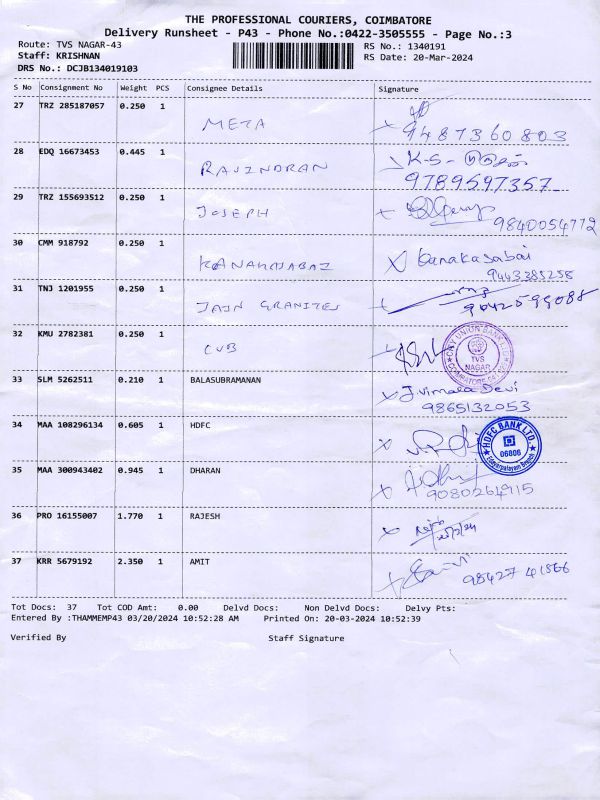 THE PROFESSIONAL COURIERS, COIMBATORE
Delivery Runsheet - P43 - Phone No.:0422-3505555 - Page No.:3
Route: TVS NAGAR-43 RS No.: 1340191
Staff: KRISHNAN RS Date: 20-Mar-2024
DRS No.: DCJB134019103
S No Consignment No Weight PCS Consignee Details Signature
27 TRZ 285187057 0.250 1
META 9487360803
28 EDQ 16673453 0.445 1
RAVINDRAN K-S-
9789597357
29 TRZ 155693512 0.250 1
JOSEPH 9840054772
30 CMM 918792 0.250 1
KANAKASABAI Kanakasabai
9443385258
31 TNJ 1201955 0.250 1
JAIN GRANITES 9042599088
32 KMU 2782381 0.250 1
CUB
CITY UNION BANK LTD
TVS
NAGAR
33 SLM 5262511 0.210 1 BALASUBRAMANAN
J.Vimala Devi
9865132053
34 MAA 108296134 0.605 1 HDFC
HDFC BANK LTD.
06806
35 MAA 300943402 0.945 1 DHARAN
9080264915
36 PRO 16155007 1.770 1 RAJESH
37 KRR 5679192 2.350 1 AMIT
98427 41566
Tot Docs: 37 Tot COD Amt: 0.00 Delvd Docs: Non Delvd Docs: Delvy Pts:
Entered By :THAMMEMP43 03/20/2024 10:52:28 AM Printed On: 20-03-2024 10:52:39
Verified By Staff Signature